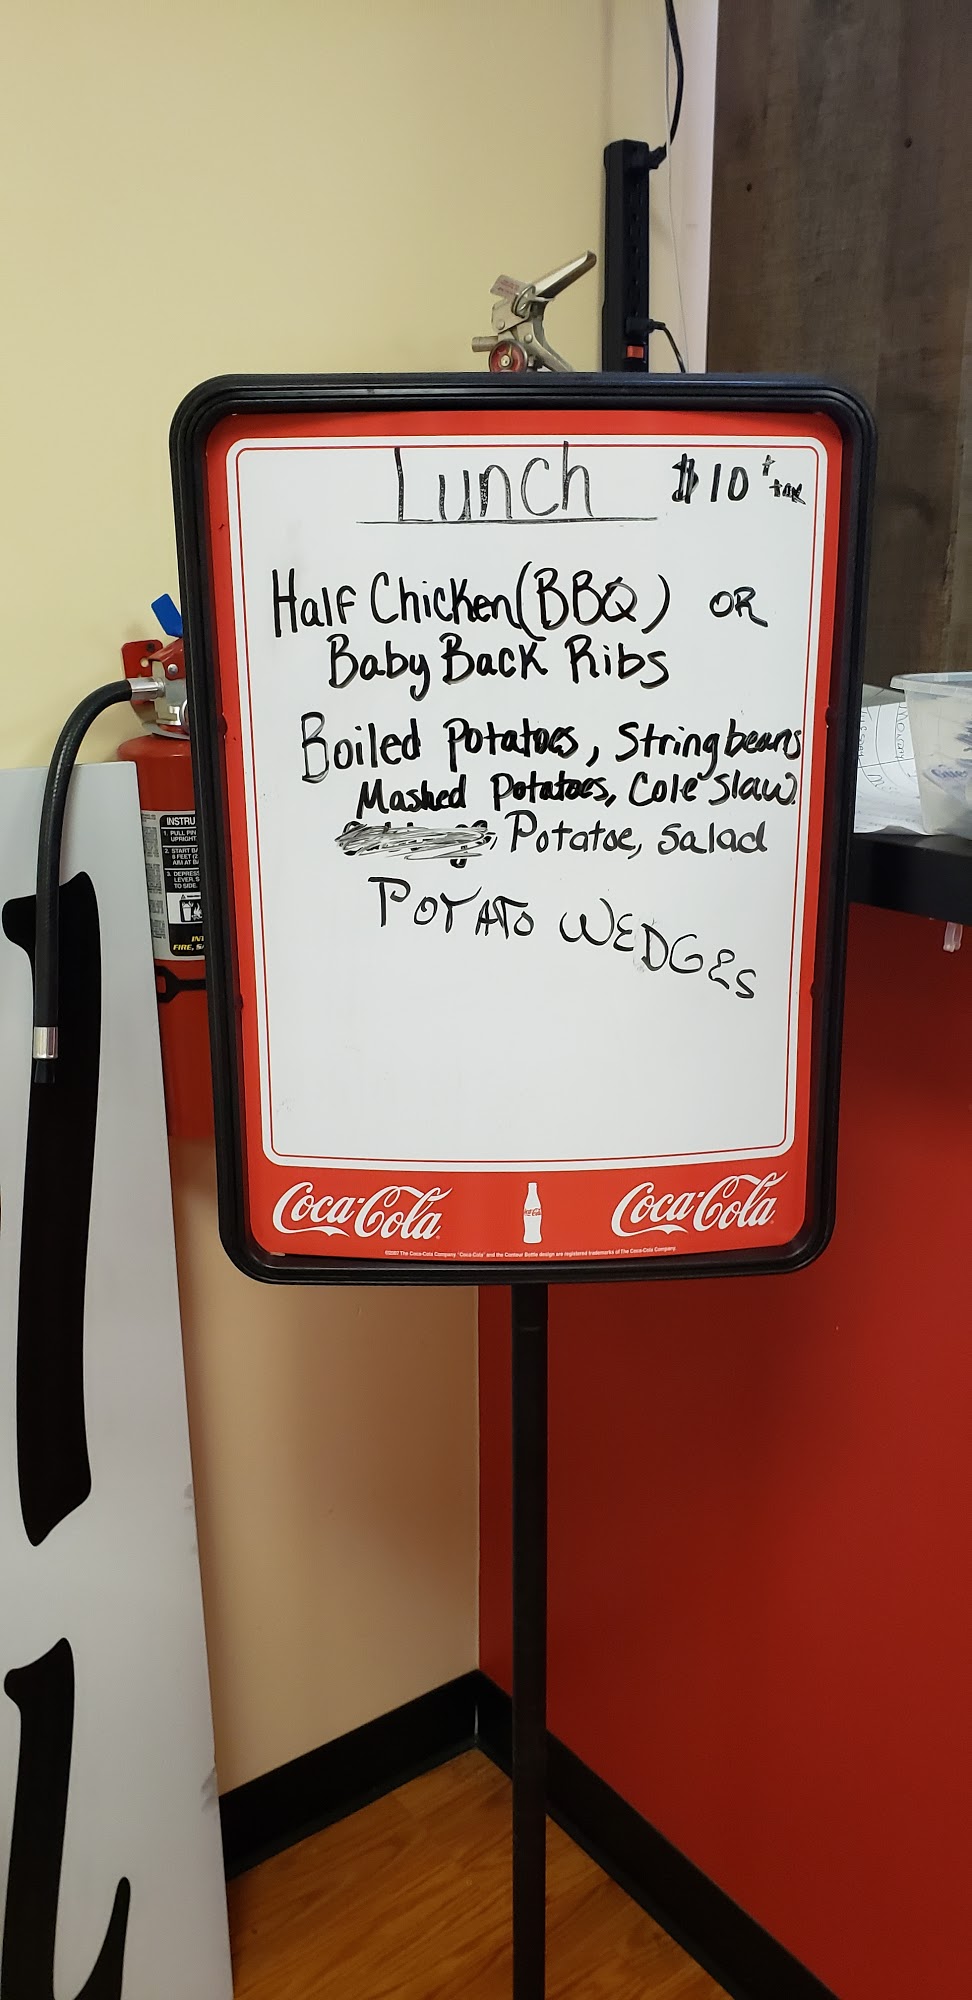 Lunch $10 + tax
Half Chicken (BBQ) OR
Baby Back Ribs
Boiled Potatoes, Stringbeans
Mashed Potatoes, Cole Slaw.
Potatoe, Salad
POTATO WEDGES
Coca-Cola Coca-Cola Coca-Cola
©2007 The Coca-Cola Company. "Coca-Cola" and the Contour Bottle design are registered trademarks of The Coca-Cola Company.
INSTRU
1. PULL PIN
UPRIGHT
2. START BA
8 FEET (2
AIM AT BA
3. DEPRESS
LEVER. S
TO SIDE.
INT
FIRE, SA